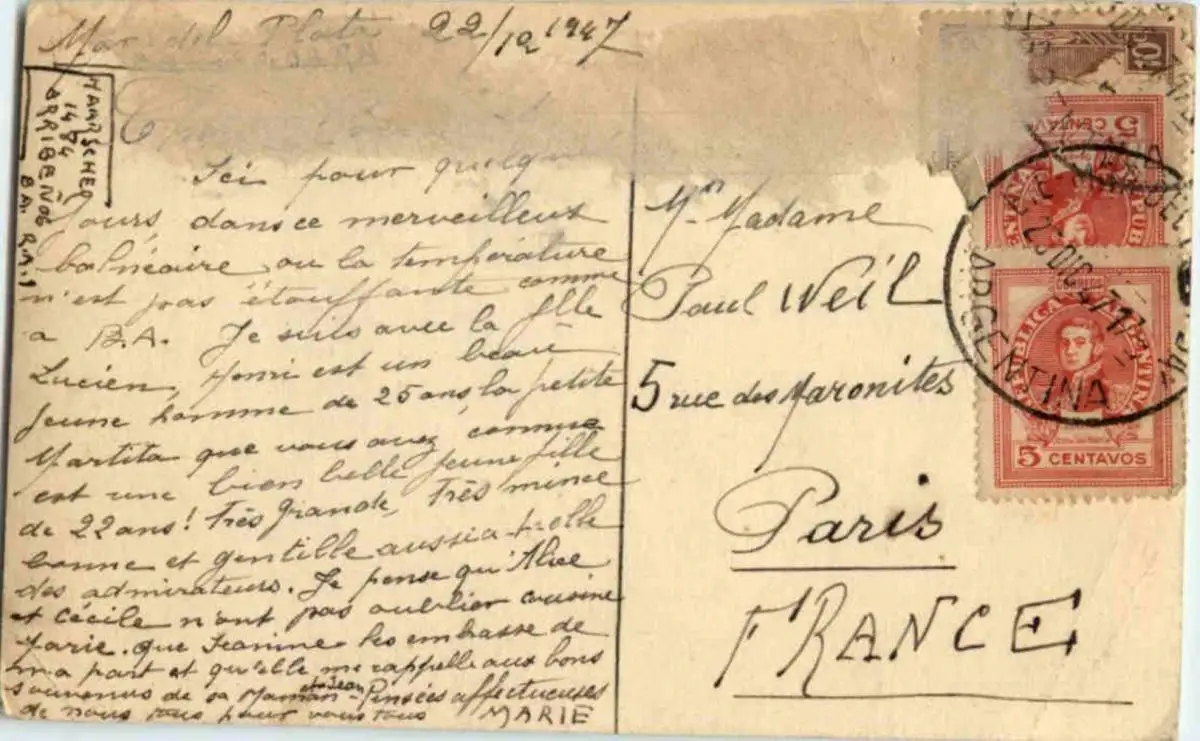 Mar del Plata 22/12 1947
HAARSCHER
1484
ARRIBEÑOS
B.A. R.A.
Ici pour quelq
jours, dans ce merveilleux
balnéaire ou la température
n'est pas étouffante comme
a B.A. Je suis avec la fille
Lucien, est un beau
jeune homme de 25 ans, la petite
Martita que vous avez connue
est une bien belle jeune fille
de 22 ans! Très grande, Très mince
bonne et gentille aussi a-t-elle
des admirateurs. Je pense qu'Alice
et Cécile n'ont pas oublier cousine
Marie. Que Jeanine les embrasse de
ma part et qu'elle me rappelle aux bons
souvenirs de sa Maman et Jean - Pensées affectueuses
de nous tous pour vous tous MARIE
Mr Madame
Paul Weil
5 rue des Maronites
Paris
FRANCE
10
5
CENTAV
REPUBLICA ARGENTINA
5 CENTAVOS
ARGENTINA